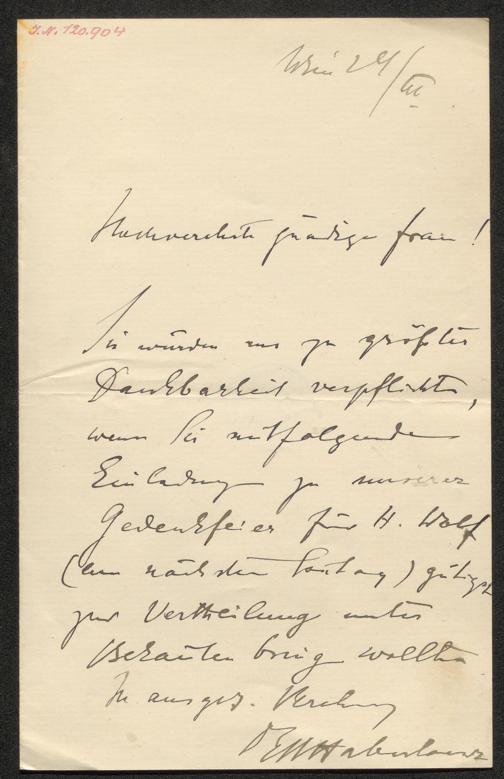 J.N. 120.904
Wien 24/III.
Hochverehrte gnädige Frau!
Sie würden uns zu größter
Dankbarkeit verpflichten,
wenn Sie mitfolgende
Einladung zu unserer
Gedenkfeier für H. Wolf
(am nächsten Sontag) gütigst
zur Vertheilung unter
Bekanten bring wollten
In ausgez. Verehrung